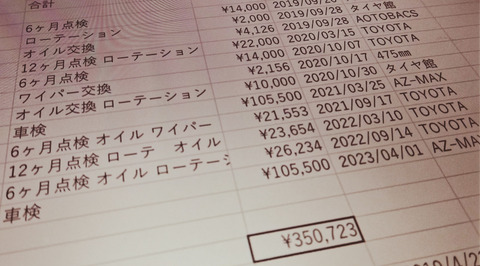 合計
6ヶ月点検 ¥14,000
ローテーション ¥2,000 2019/09/28 タイヤ館
オイル交換 ¥4,126 2019/09/28 AOTOBACS
12ヶ月点検 ローテーション ¥22,000 2020/03/15 TOYOTA
6ヶ月点検 ¥14,000 2020/10/07 TOYOTA
ワイパー交換 ¥2,156 2020/10/17 475㎜
オイル交換 ローテーション ¥10,000 2020/10/30 タイヤ館
車検 ¥105,500 2021/03/25 AZ-MAX
6ヶ月点検 オイル ワイパー ¥21,553 2021/09/17 TOYOTA
12ヶ月点検 ローテ オイル ¥23,654 2022/03/10 TOYOTA
6ヶ月点検 オイル ローテーシ ¥26,234 2022/09/14 TOYOTA
車検 ¥105,500 2023/04/01 AZ-MA
¥350,723